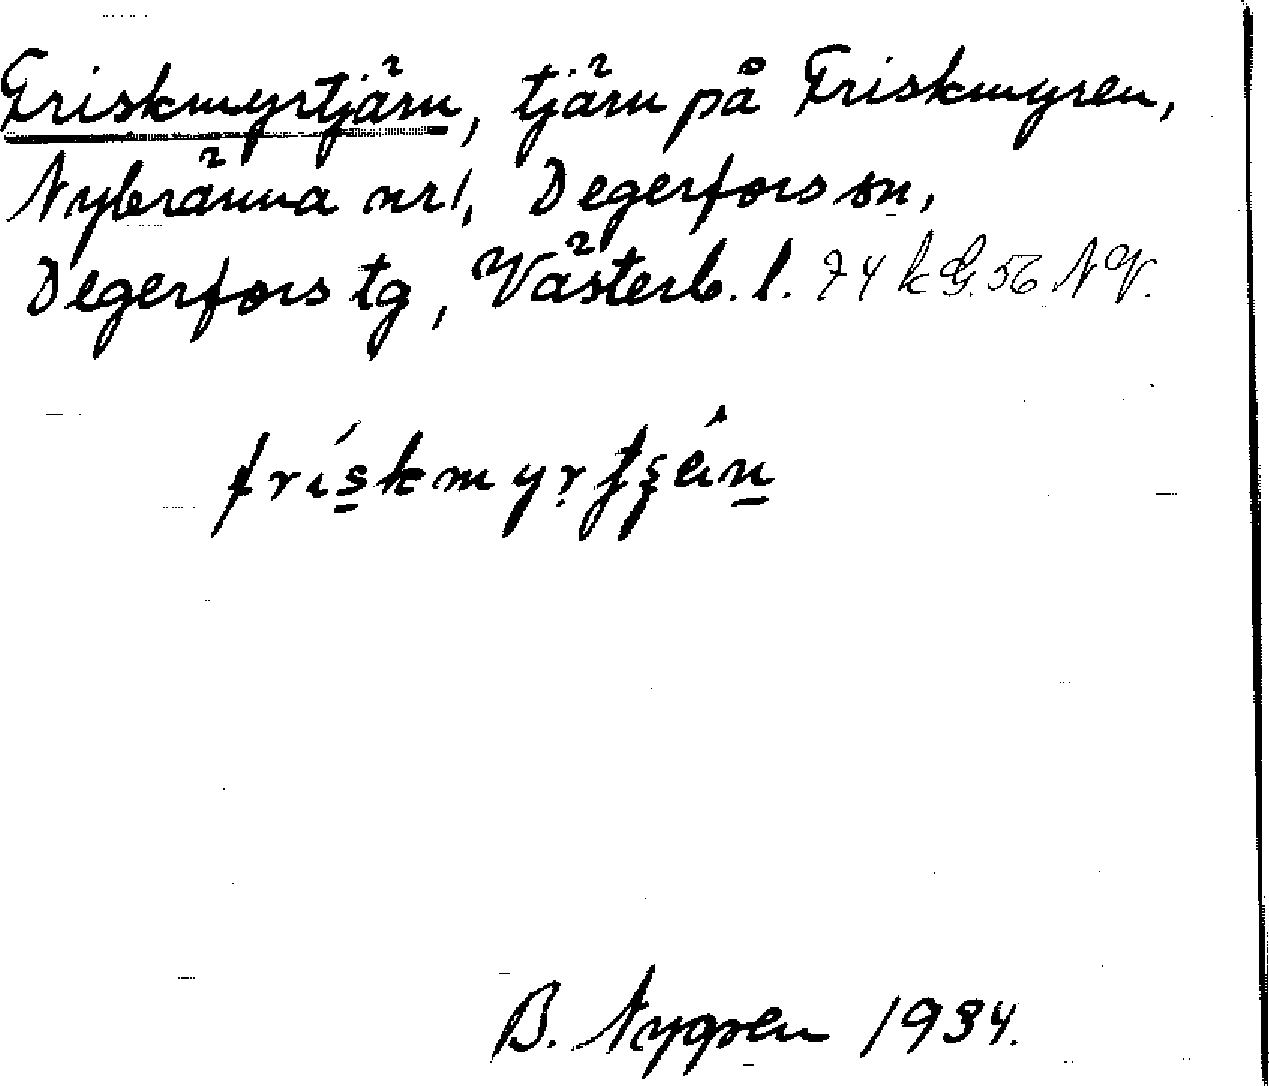 Friskmyrtjärn, tjärn på Friskmyren,
Nybränna nr 1, Degerfors sn,
Degerfors tg, Västerb. l. 74 k G. 56 N V.
frískmyrtʂän
B. Nygren 1934.